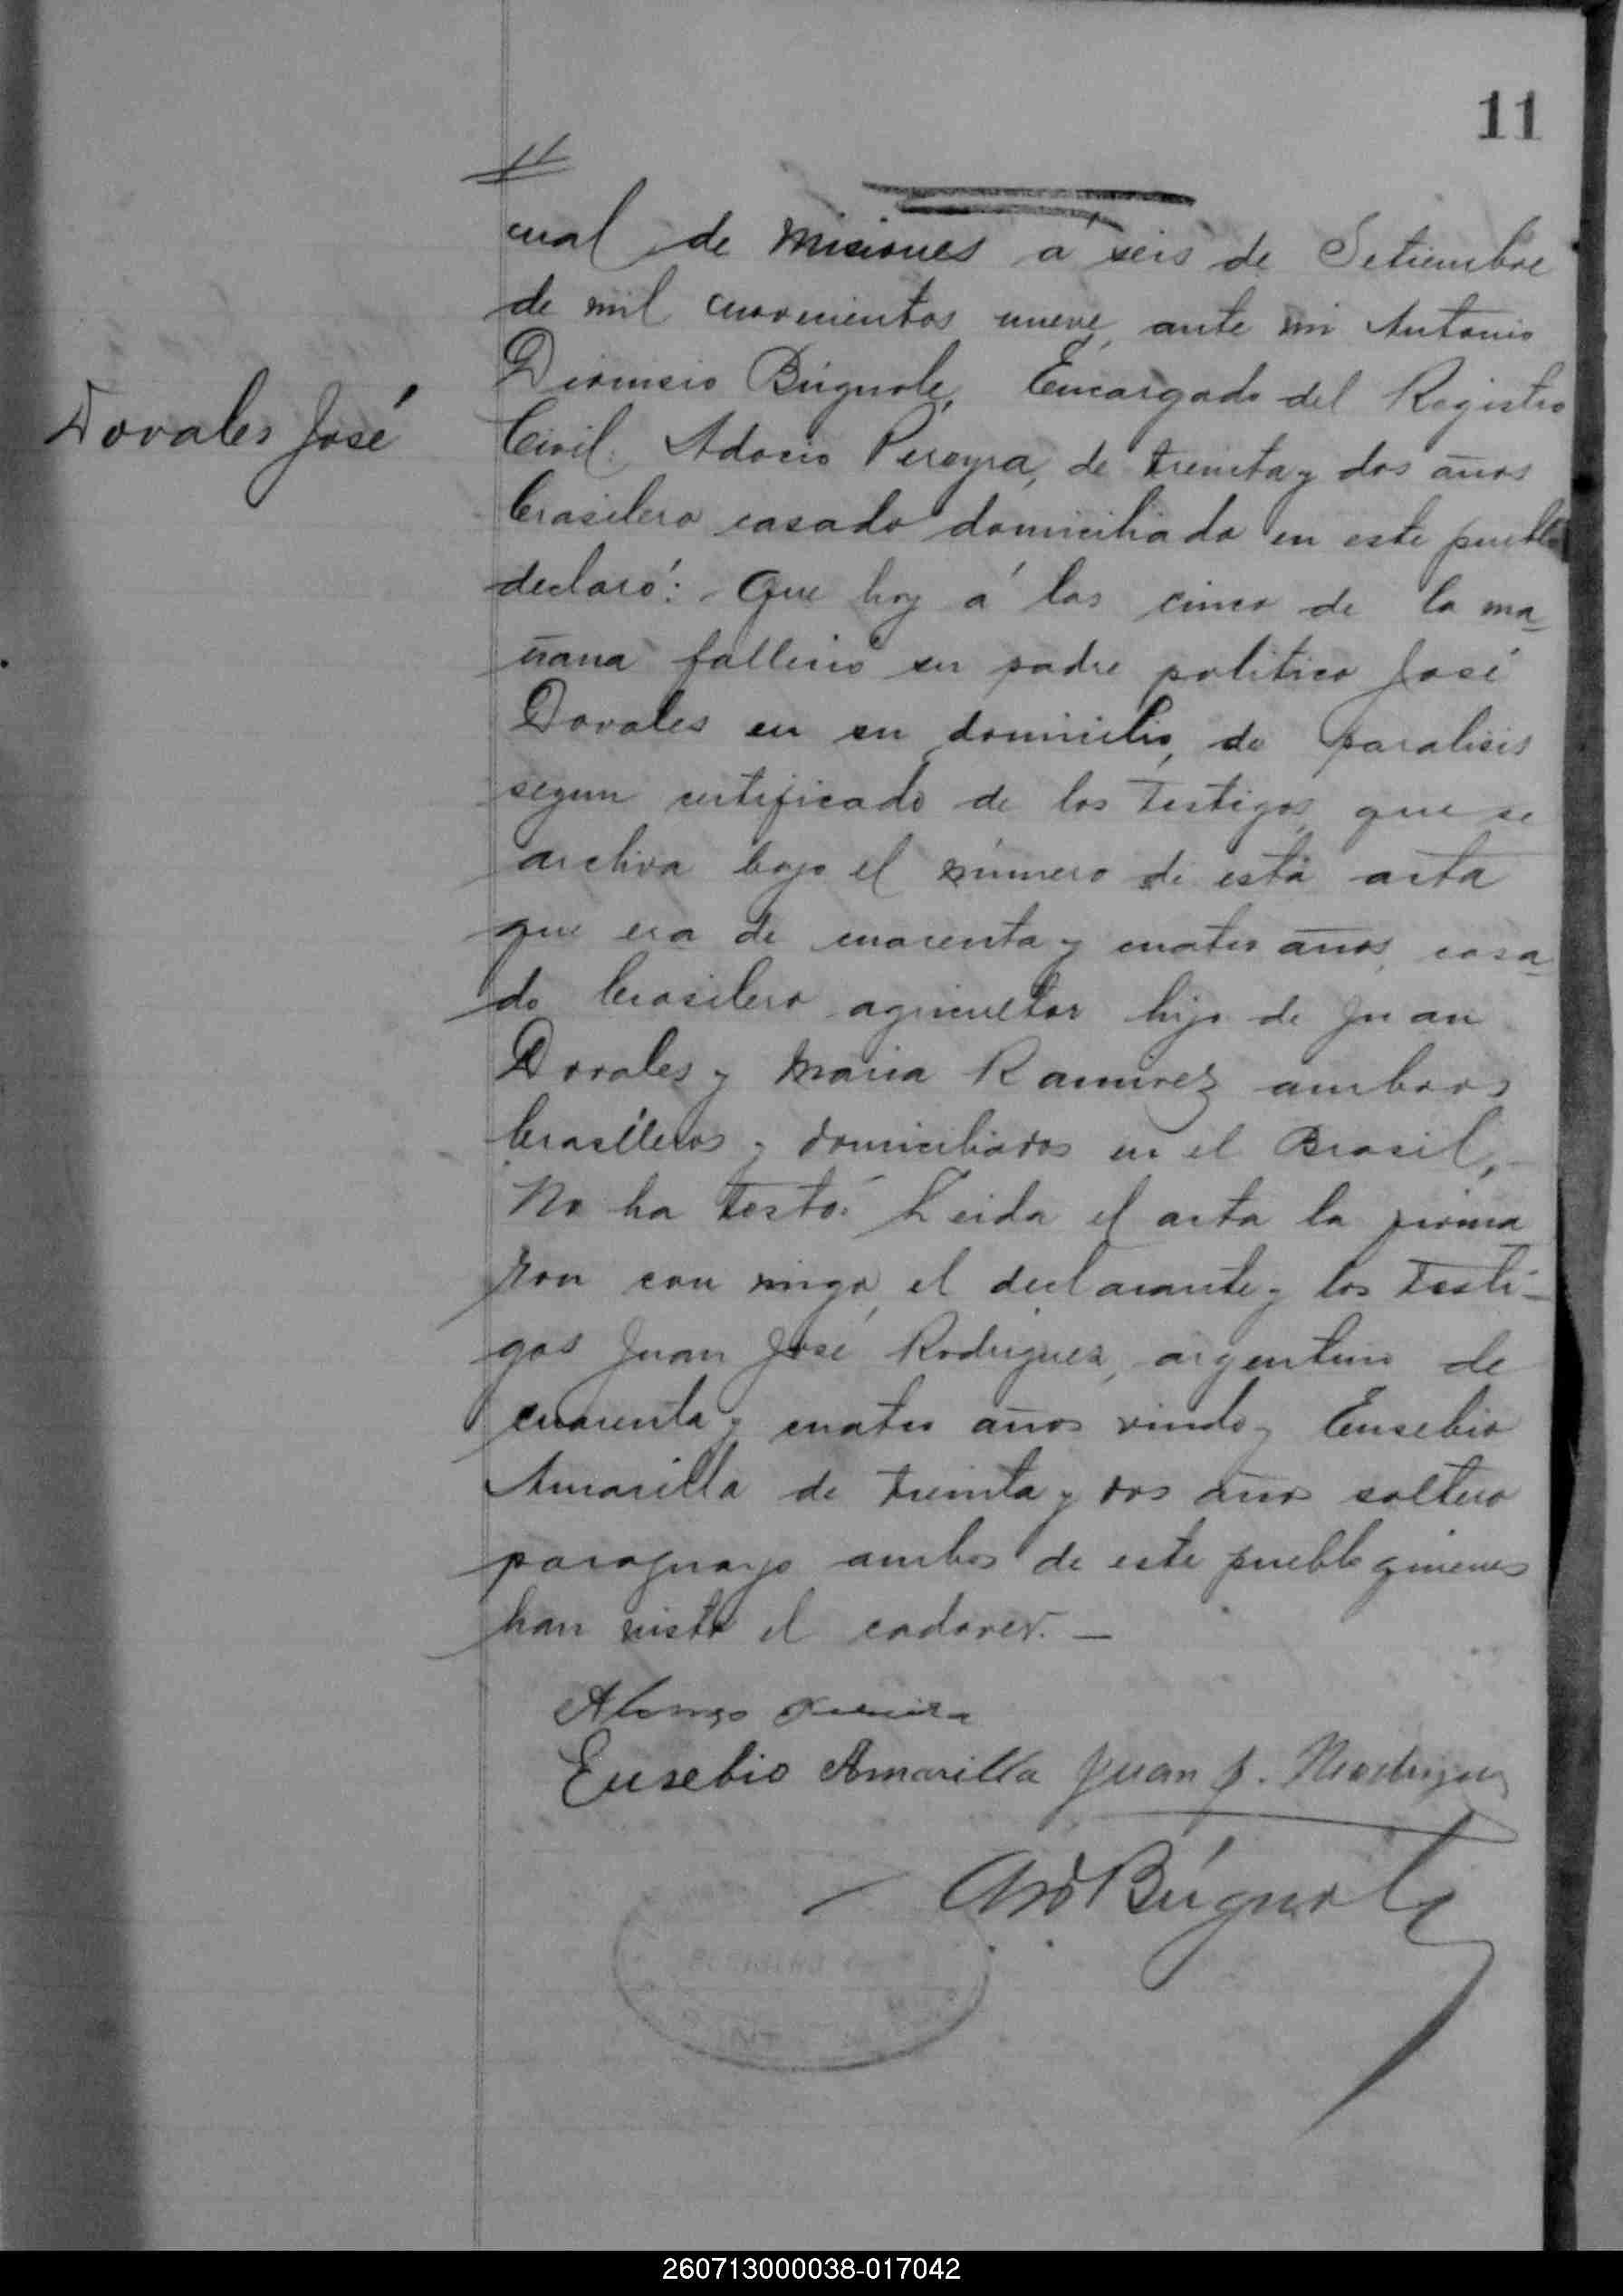 11
11
cual de Misiones á seis de Setiembre
de mil nuevecientos nueve, ante mi Antonio
Dionisio Búgnole, Encargado del Registro
Dovales José
Civil. Adocio Pereyra, de treinta y dos años
brasilero casado domiciliado en este pueblo
declaró: Que hoy á las cinco de la ma-
ñana fallecio su padre politico José
Dovales en su domicilio, de paralisis
segun certificado de los testigos que se
archiva bajo el número de esta acta
que era de cuarenta y cuatro años, casa-
do brasilero agricultor hijo de Juan
Dovales y Maria Ramirez ambos
brasileros y domiciliados en el Brasil,
No ha testó. Leida el acta la firma
ron con migo, el declarante y los testi-
gos Juan José Rodriguez, argentino de
cuarenta y cuatro años viudo y Eusebio
Amarilla de treinta y dos años soltero
paraguayo ambos de este pueblo quienes
han visto el cadaver. —
Eusebio Amarilla Juan J. Rodriguez
Búgnole
260713000038-017042